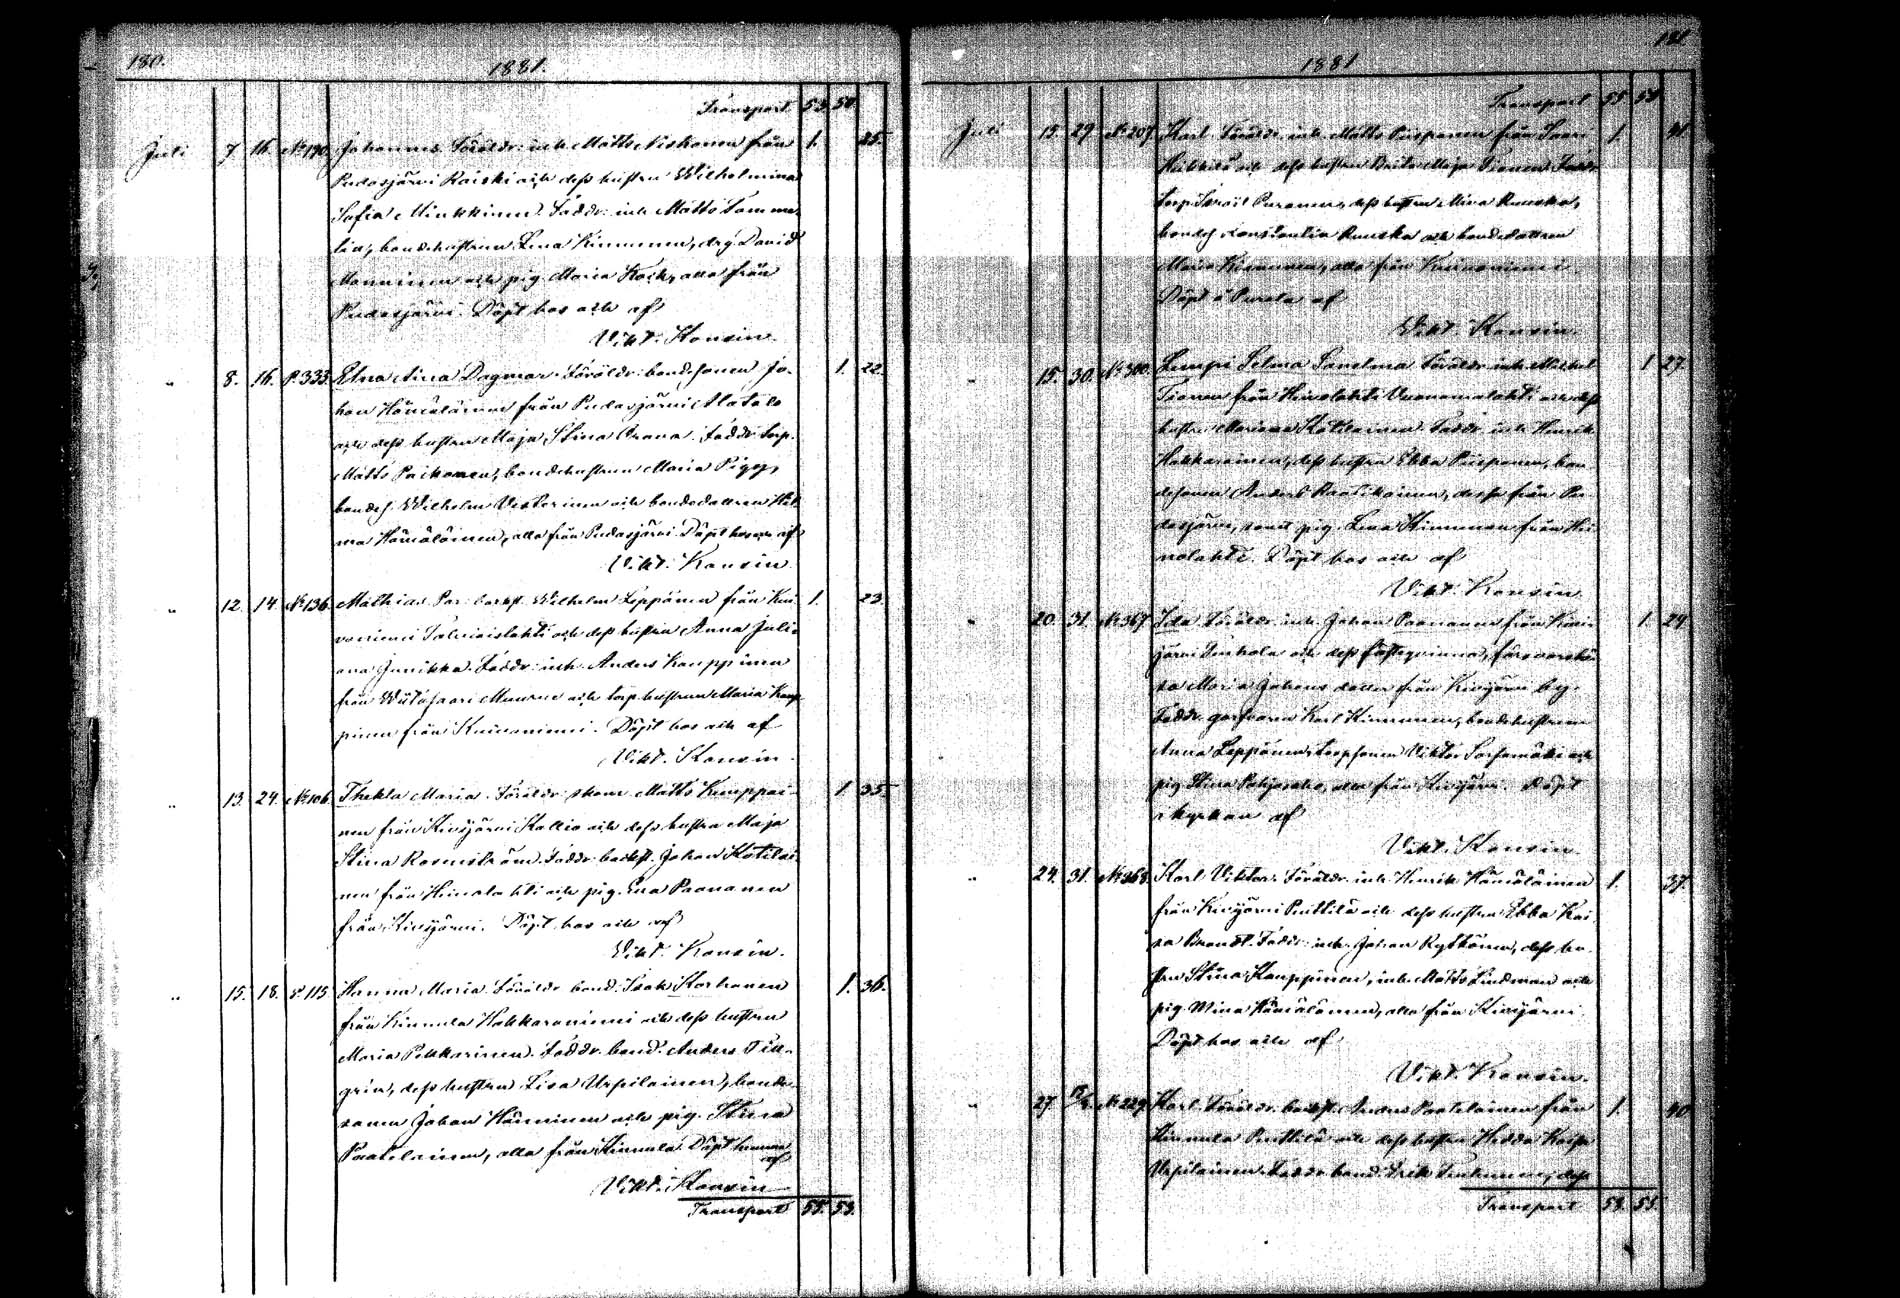 180.
1881.
Transport 53. 50.
Juli 7. 16. No 190. Johannes. Föräldr: inh. Matts Niskanen från 1. 25.
Pudasjärvi Raiski och dess hustru Wilhelmina
Sofia Minkkinen. Faddr: inh. Matts Tamme-
lin, bondehustrun Lena Kinnunen, drg. David
Manninen och pig. Maria Kock, alla från
Pudasjärvi. Döpt hos och af
Vikt. Konsin.
" 8. 16. P. 333. Elna Aina Dagmar. Föräldr: bondesonen Jo- 1. 22.
han Hämäläinen från Pudasjärvi Alatalo
och dess hustru Maja Stina Orava. Faddr: torp.
Matts Paikanen, bondehustrun Maria Pigg,
bondes. Wilhelm Vesterinen och bondedottren Hil-
ma Hämäläinen, alla från Pudasjärvi. Döpt af
Vikt. Konsin.
" 12. 14. No 136. Mathias. Par: backst. Wilhelm Leppänen från Kui- 1. 23.
vaniemi och dess hustru Anna Juli-
ana Junikka. Faddr: inh. Anders Kauppinen
från Wiitasaari och torp.hustrun Maria Kaup-
pinen från Kuivaniemi. Döpt hos och af
Vikt. Konsin.
" 13. 24. No 106. Thekla Maria. Föräldr: skom. Matts Kemppai- 1. 35.
nen från Kivijärvi Kallio och dess hustru Maja
Stina Rosenström. Faddr: backst. Johan Kotilai-
nen från Heinolahti och pig. Eva Paananen
från Kivijärvi. Döpt hos och af
Vikt. Konsin.
" 15. 18. P. 115. Hanna Maria. Föräldr: bond. Isak Korhonen 1. 36.
från Kinnula Hakkaraniemi och dess hustru
Maria Pekkarinen. Faddr: bond. Anders Till-
grén, dess hustru Lisa Urpilainen, bonde-
sonen Johan Hänninen och pig. Stina
Paatelainen, alla från Kinnula. Döpt hemma
af
Vikt. Konsin
Transport 55. 53.
181
1881
Transport 55 53
Juli 15. 29 No 207. Karl. Föräldr: inh. Matts Piispanen från Saari 1. 41.
Heikkilä och dess hustru Brita Maja Tiainen. Faddr:
torp. Israël Puranen, dess hustru Mina Ruuska,
bondes. Konstantin Ruuska och bondedottren
Maria Kinnunen, alla från Kuivaniemi.
Döpt å Purala af
Vikt. Konsin.
" 15. 30. No 300. Lempi Selma Sanelma. Föräldr: inh. Michel 1 27.
Tiainen från Heinolahti Vuonamalahti och dess
hustru Mariana Kotilainen. Faddr: inh. Henrik
Hakkarainen, dess hustru Ebba Piispanen, bon-
desonen Anders Raatikainen, dessa från Pu-
dasjärvi, samt pig. Lena Kinnunen från Hei-
nolahti. Döpt hos och af
Vikt. Konsin.
" 20. 31. No 367. Ida. Föräldr: inh. Johan Paananen från Kivi- 1. 24.
järvi Tenhola och dess fästeqvinna,
Maria Johans dotter från Kivijärvi by.
Faddr: Karl Kinnunen, bondehustrun
Anna Leppänen, torpsonen Viktor och
pig. Stina Pohjoisaho, alla från Kivijärvi. Döpt
i kyrkan af
Vikt. Konsin.
" 24. 31. No 368. Karl Viktor. Föräldr: inh. Henrik Hämäläinen 1. 37.
från Kivijärvi Penttilä och dess hustru Ebba Kai-
sa Brandt. Faddr: inh. Johan Rytkönen, dess hu-
stru Stina Kauppinen, inh. Matts Lindman och
pig. Mina Hämäläinen, alla från Kivijärvi.
Döpt hos och af
Vikt. Konsin.
" 27. No 229. Karl. Föräldr: backst. Anders Paatelainen från 1. 40
Kinnula Penttilä och dess hustru Hedda Kaisa
Urpilainen. Faddr: bond. Erik dess
Transport 58. 55.